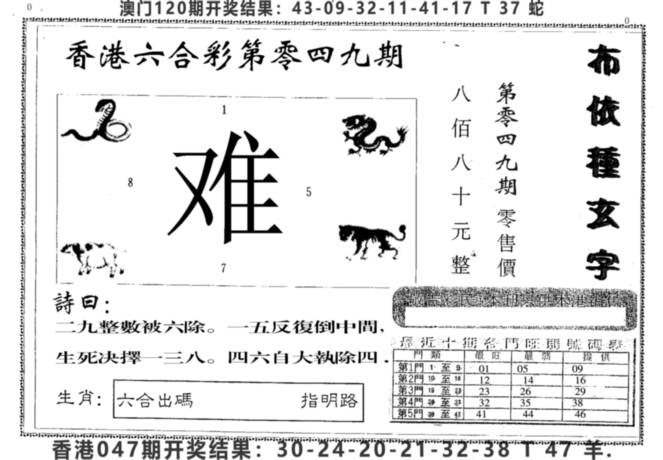 澳门120期开奖结果：43-09-32-11-41-17 T 37 蛇
0
0
香港六合彩第零四九期
布依種玄字
第零四九期零售價
八佰八十元整
1
8
难
5
7
詩曰：
二九整數被六除。一五反復倒中間，
生死决擇一三八。四六自大執除四．
生肖：
六合出碼 指明路
最近十期各門旺開號碼
門類 最旺 最弱 提供
第1門 1 至 9 01 05 09
第2門 10 至 18 12 14 16
第3門 19 至 23 26 29
第4門 至 32 35 38
第5門 至 41 44 46
香港047期开奖结果：30-24-20-21-32-38 T 47 羊.